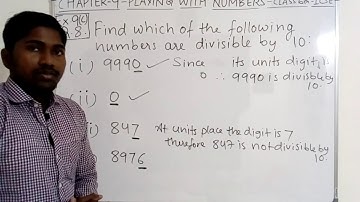 CHAPTER-9-PLAYING WITH NUMBERS-CLASS
Ex 9(C)
8. Find which of the following
numbers are divisible by 10:
(i) 9990 ✓ Since its units digit is
0 ∴ 9990 is divisible by
10.
(ii) 0 ✓
847 At units place the digit is 7
therefore 847 is not divisible by
10.
8976